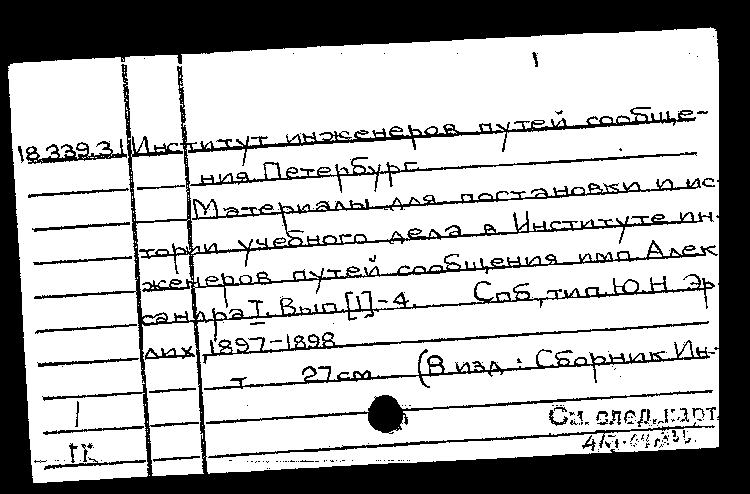 1
18.339.31 Институт инженеров путей сообще-
ния. Петербург
Материалы для постановки и ис-
тории учебного дела в Институте ин-
женеров путей сообщения имп. Алек
сандра I. Вып. [1]-4. Спб, тип. Ю.Н. Эр
лих, 1897-1898
т. 27 см (В изд.: Сборник Ин-
См. след. карт